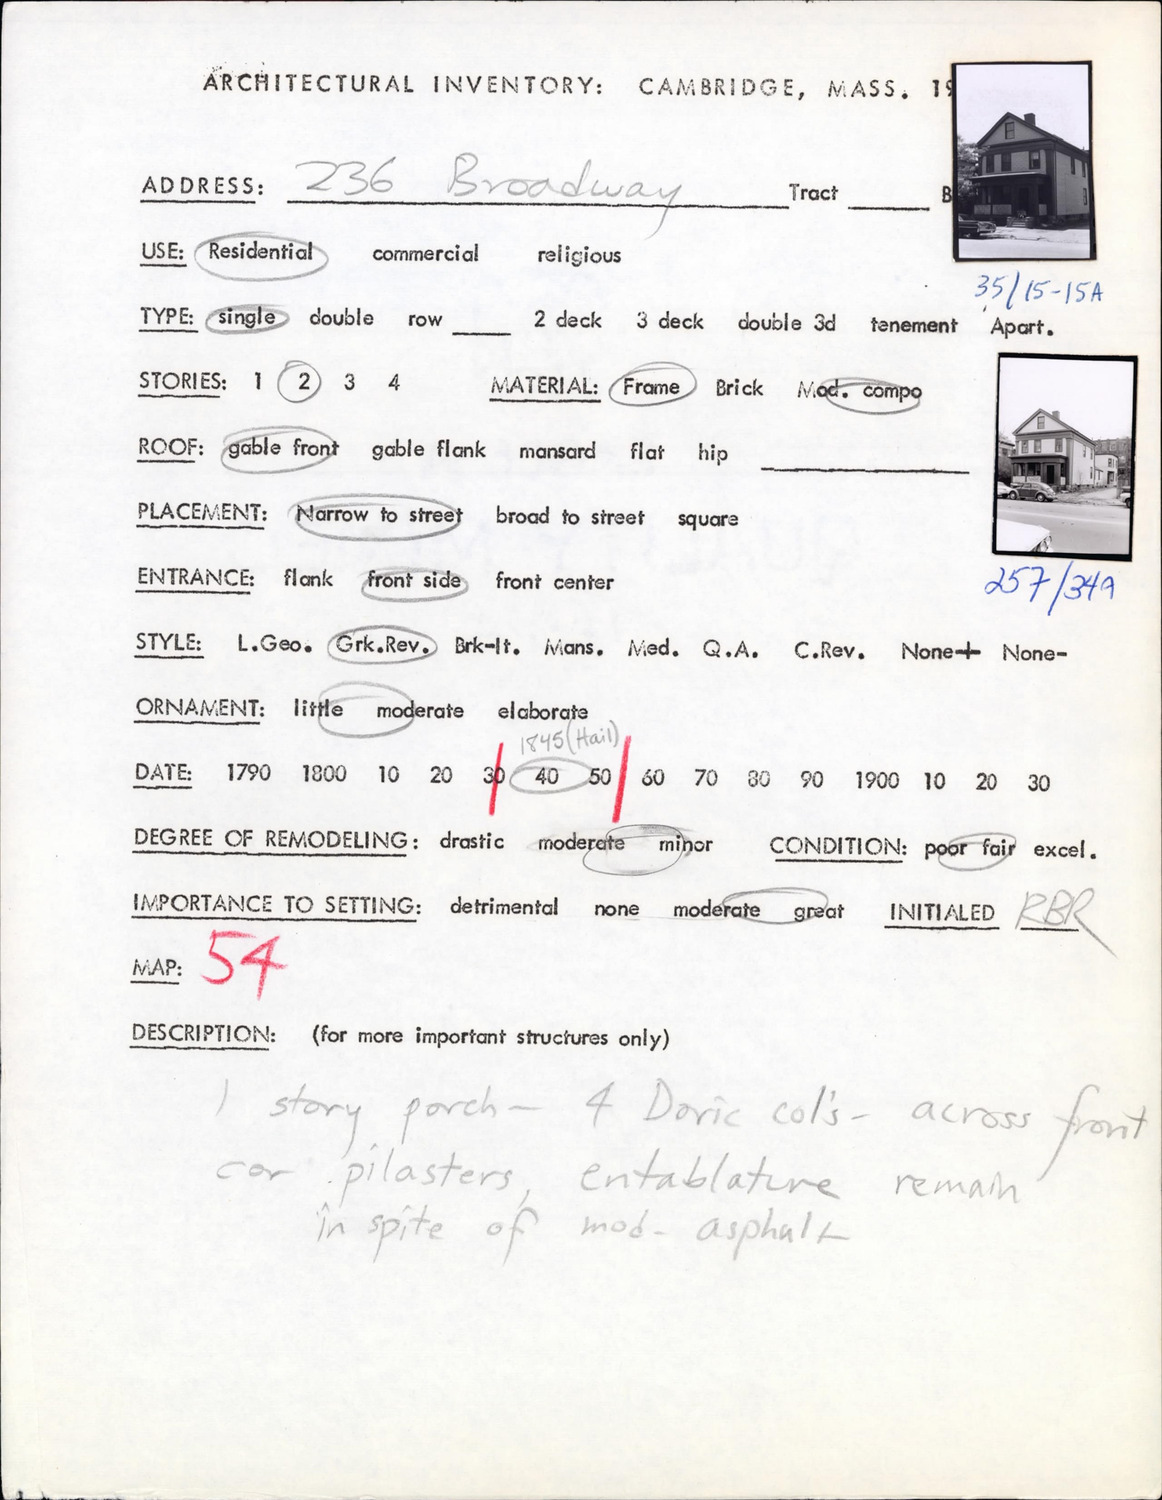 ARCHITECTURAL INVENTORY: CAMBRIDGE, MASS. 19
ADDRESS: 236 Broadway Tract ____ B
35/15-15A
USE: Residential commercial religious
TYPE: single double row ____ 2 deck 3 deck double 3d tenement Apart.
STORIES: 1 2 3 4 MATERIAL: Frame Brick Mod. compo
ROOF: gable front gable flank mansard flat hip ____
PLACEMENT: Narrow to street broad to street square
ENTRANCE: flank front side front center
257/34a
STYLE: L.Geo. Grk.Rev. Brk-It. Mans. Med. Q.A. C.Rev. None+ None-
ORNAMENT: little moderate elaborate
1845 (Hail)
DATE: 1790 1800 10 20 30 40 50 60 70 80 90 1900 10 20 30
DEGREE OF REMODELING: drastic moderate minor CONDITION: poor fair excel.
IMPORTANCE TO SETTING: detrimental none moderate great INITIALED RBR
MAP: 54
DESCRIPTION: (for more important structures only)
1 story porch - 4 Doric col's - across front
cor pilasters, entablature remain
in spite of mod. asphalt